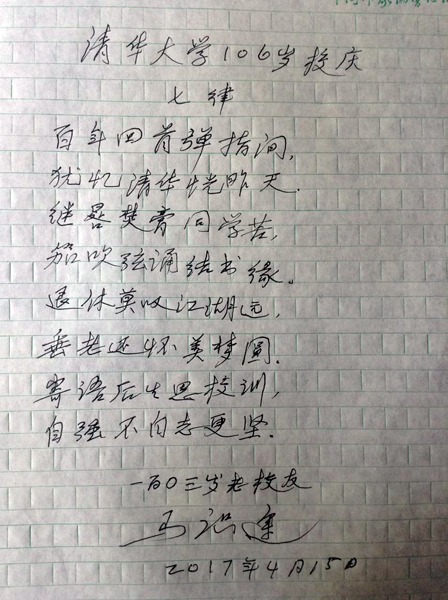 清华大学106岁校庆
七律
百年回首弹指间,
犹忆清华恍昨天.
继晷焚膏同学苦,
笳吹弦诵结书缘。
退休莫叹江湖远,
垂老还怀美梦圆.
寄语后生思校训,
自强不息志更坚.
一百〇三岁老校友
马识途
2017年4月15日